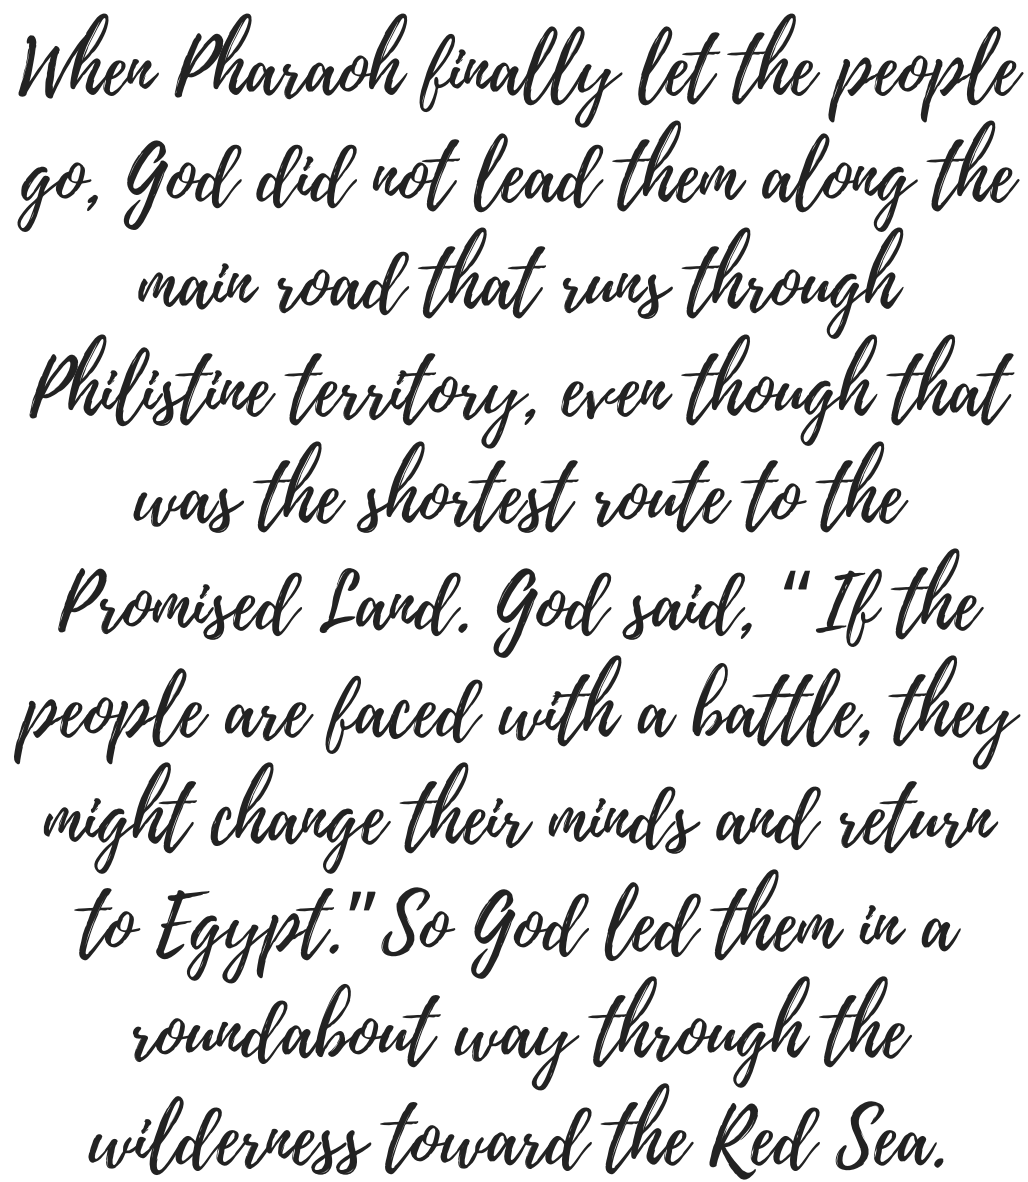 When Pharaoh finally let the people
go, God did not lead them along the
main road that runs through
Philistine territory, even though that
was the shortest route to the
Promised Land. God said, " If the
people are faced with a battle, they
might change their minds and return
to Egypt." So God led them in a
roundabout way through the
wilderness toward the Red Sea.